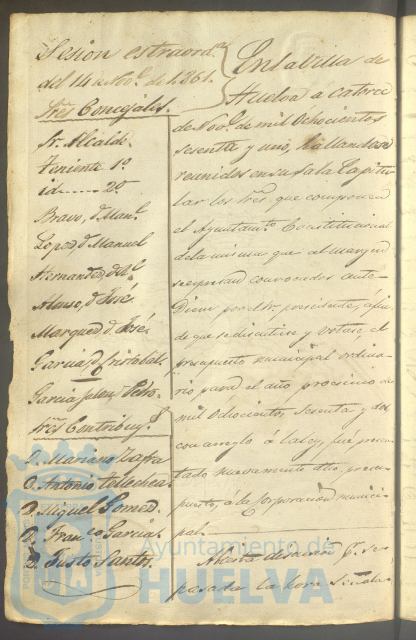 Sesion estraord.ª
del 14 de Nov.e de 1861.
Sres Concejales.
Sr. Alcalde.
Teniente 1º
id------2º
Bravo, D. Man.l
Lopez, D. Manuel
Hernandez, D.
Alonso, D. José
Marquez, D. José
Garcia, D. Cristobal
Garcia D. Pedro
Sres Contribuy.s
D. Mariano Zafra
D. Antonio Tellechea
D. Miguel Gomez
D. Fran.co Garcia
D. Justo Santos
En la Villa de
Huelva a catorce
de Nov.e de mil Ochocientos
sesenta y uno, hallandose
reunidos en su Sala Capitu-
lar los Sres que componen
el Ayuntam.to Constitucional
de la misma que al margen
se espresan convocados ante-
Diem por el Sr. presidente, á fin
de que se discutiese y votase, el
presupuesto municipal ordina-
rio para el año procsimo de
mil Ochocientos Sesenta y dos,
con arreglo á la ley, fué presen-
tado nuevamente dho presu-
puesto, á la Corporacion munici-
pal.
Abierta discusion
pasada la hora señala-
Ayuntamiento de
HUELVA